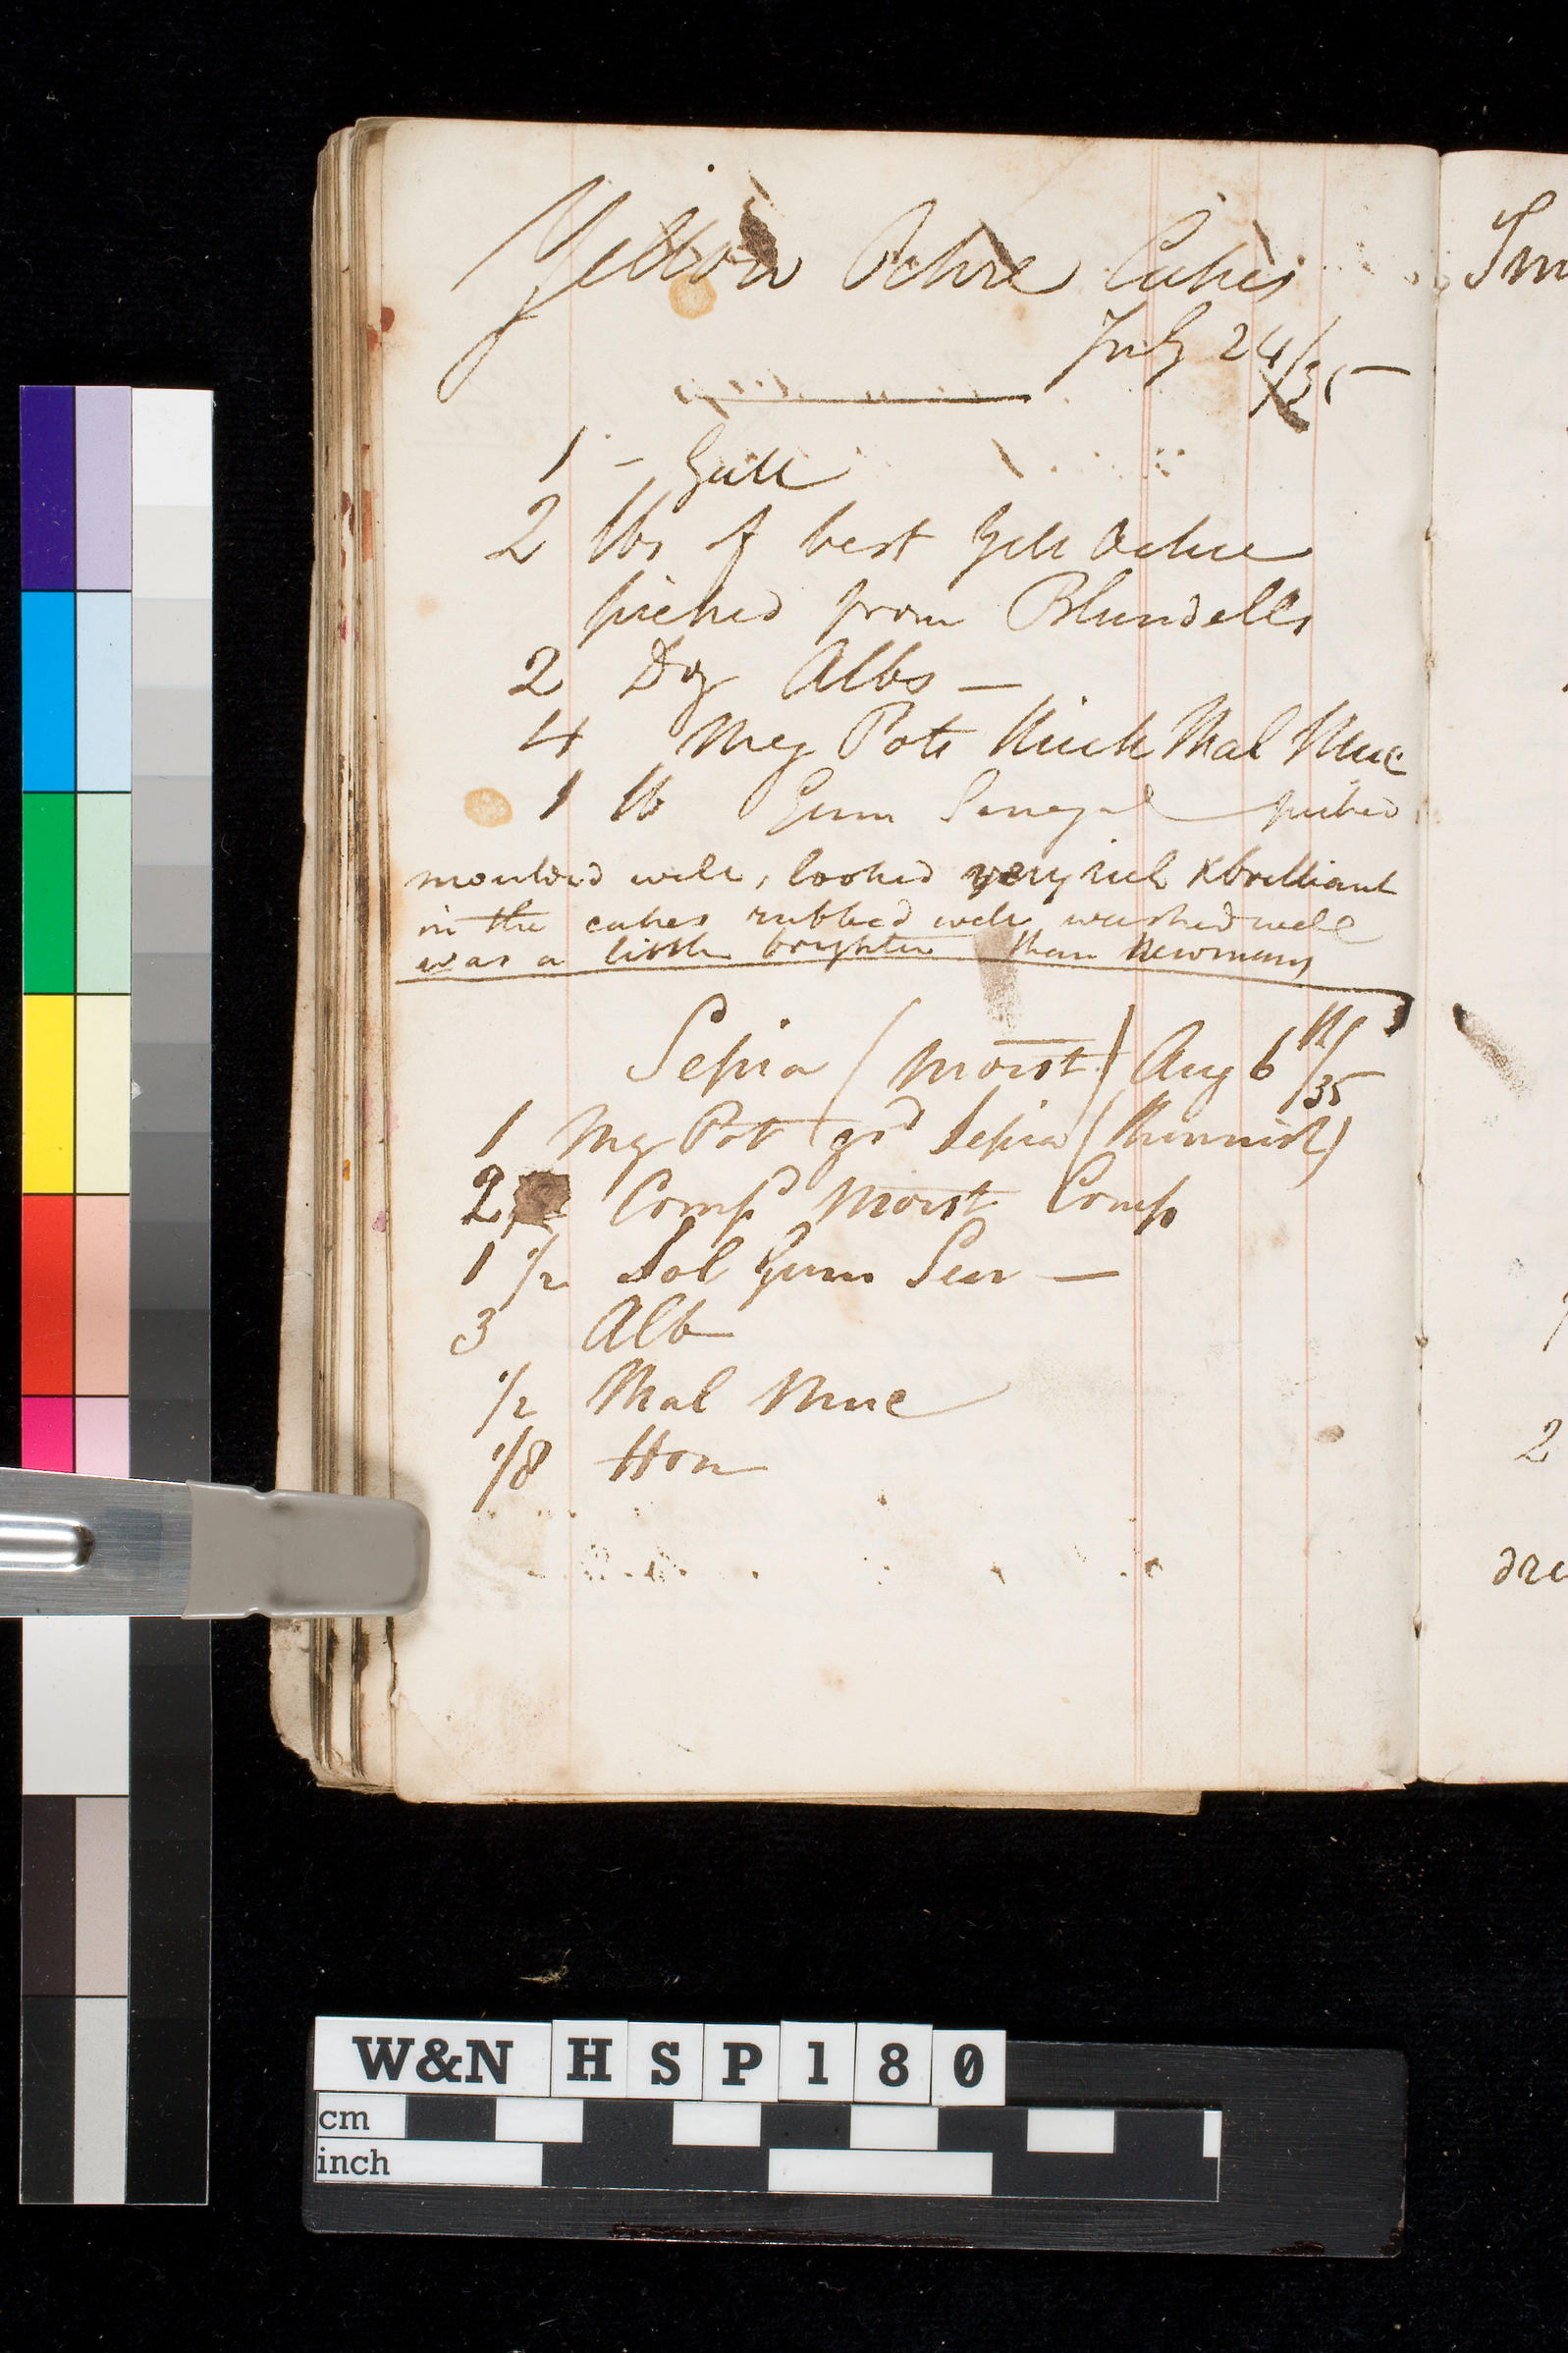 Yellow Ochre Cakes
July 24/35
1 - Gall
2 lbs of best Yell Ochre
picked from Blundells
2 Doz Albs —
4 Meg Pots thick Mal Muc
1 lb Gum Senegal picked
moulded well, looked very rich & brilliant
in the cakes rubbed well washed well
was a little brighter than Newmans
Sepia (moist) Aug 6th/35
1 Meg Pot grd Sepia (thinnish)
2 Compd Moist Comp
1 1/2 Sol Gum Sen —
3 Alb
1/2 Mal Muc
1/8 Hon
Sm
2
dre
W&N HSP180
cm
inch